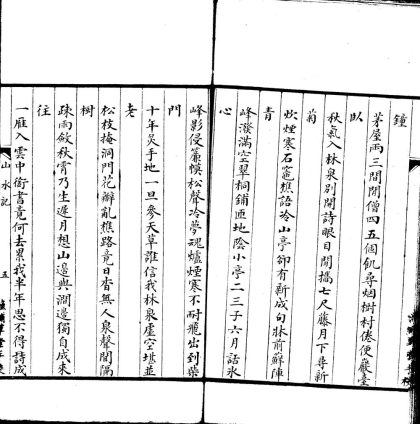 鐘
茅屋兩三間閒僧四五個飢尋烟樹村倦便巖臺
臥
秋氣入林泉別開詩眼目閒攜七尺藤月下尋新
菊
炊煙寒石竈樵語冷山亭卻有新成句牀前蘚陣
青
峰潑滿空翠桐鋪匝地陰小亭二三子六月話氷
心
峰影侵簾幙松聲冷夢魂爐煙寒不耐飛出到柴
門
十年炙手地一旦參天草誰信我林泉虛空堪並
老
松枝掩洞門花瓣亂樵路竟日杳無人泉聲聞隔
樹
疎雨斂秋霄乃生遲月想山邊與澗邊獨自成來
往
一雁入雲中銜書竟何去累我半年思不得詩成
山水記
五
草堂